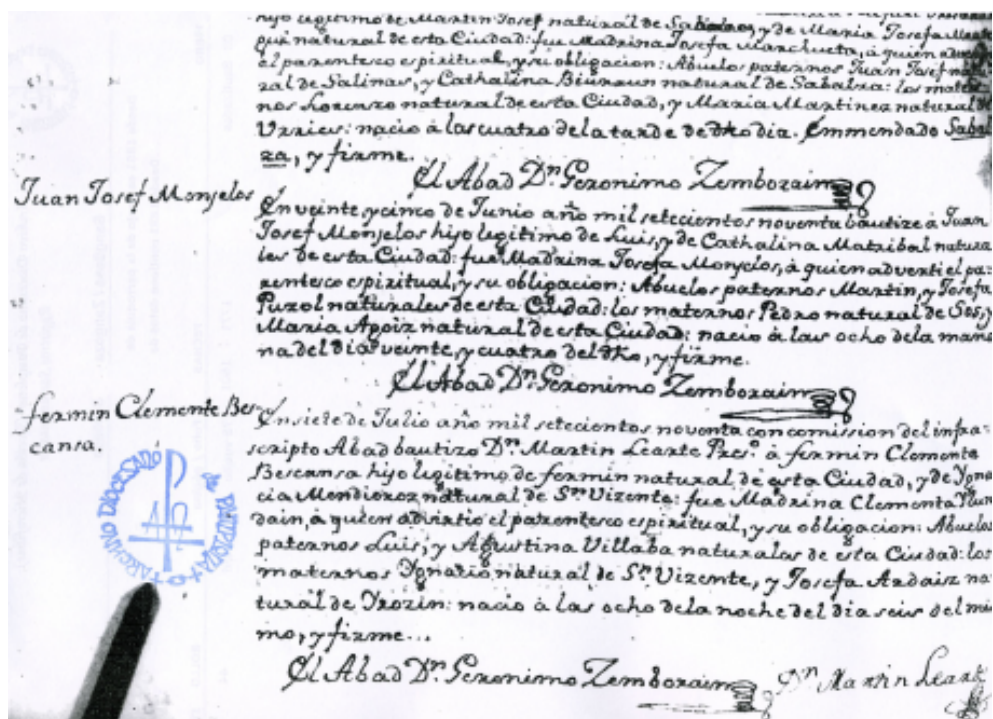 hijo legitimo de Martin Josef natural de Sabalza, y de Maria Josefa
natural de esta Ciudad: fue Madrina Josefa Marchueta, à quien
el parentesco espiritual, y su obligacion: Abuelos paternos Juan Josef natu
ral de Salinas, y Cathalina Biurrun natural de Sabalza: los mater
nos Lorenzo natural de esta Ciudad, y Maria Martinez natural de
Urries: nacio à las cuatro de la tarde de dho dia. Emmendado Sabal
za, y firme.
El Abad Dn. Geronimo Zemborain
Juan Josef Monjelos
En veinte, y cinco de Junio año mil setecientos noventa bautize à Juan
Josef Monjelos hijo legitimo de Luis, y de Cathalina Matzibal natura
les de esta Ciudad: fue Madrina Josefa Monjelos, à quien adverti el pa-
rentesco espiritual, y su obligacion: Abuelos paternos Martin, y Josefa
Puzol naturales de esta Ciudad: los maternos Pedro natural de Sos, y
Maria Apoiz natural de esta Ciudad: nacio à las ocho de la maña
na del dia veinte, y cuatro del dho, y firme.
El Abad Dn. Geronimo Zemborain
fermin Clemente Bes-
cansa.
En siete de Julio año mil setecientos noventa con comission del infra-
scripto Abad bautizo Dn. Martin Learte Presº. à fermin Clemente
Bescansa hijo legitimo de fermin natural de esta Ciudad, y de Ygna
cia Mendioroz natural de Sn. Vizente: fue Madrina Clementa Yun
dain, à quien advirtio el parentesco espiritual, y su obligacion: Abuelos
paternos Luis, y Agustina Villaba naturales de esta Ciudad: los
maternos Ygnacio natural de Sn. Vizente, y Josefa Ardaiz na
tural de Yrozin: nacio à las ocho de la noche del dia seis del mis
mo, y firme...
El Abad Dn. Geronimo Zemborain Dn. Martin Learte
ARCHIVO DIOCESANO